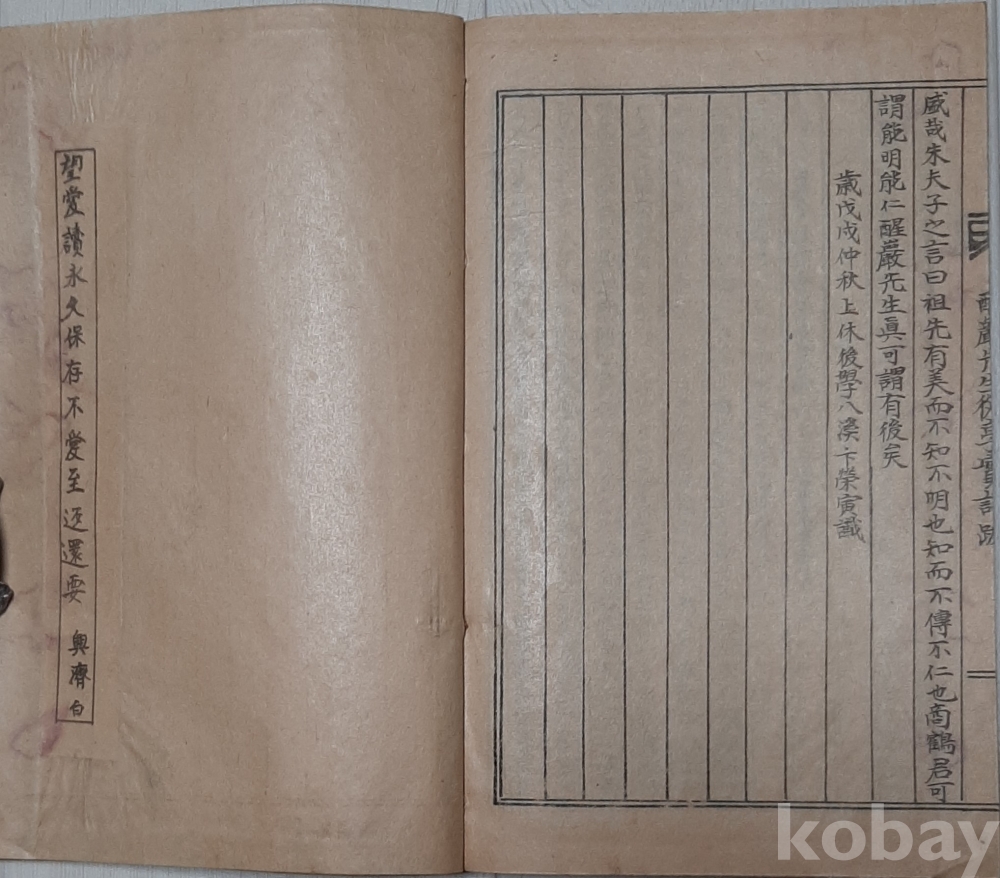 盛哉朱夫子之言曰祖先有美而不知不明也知而不傳不仁也商鶴君可
謂能明能仁醒巖先生眞可謂有後矣
歲戊戌仲秋上休後學八溪卞榮寅識
望愛讀永久保存不愛至 還要 興濟 白
kobay